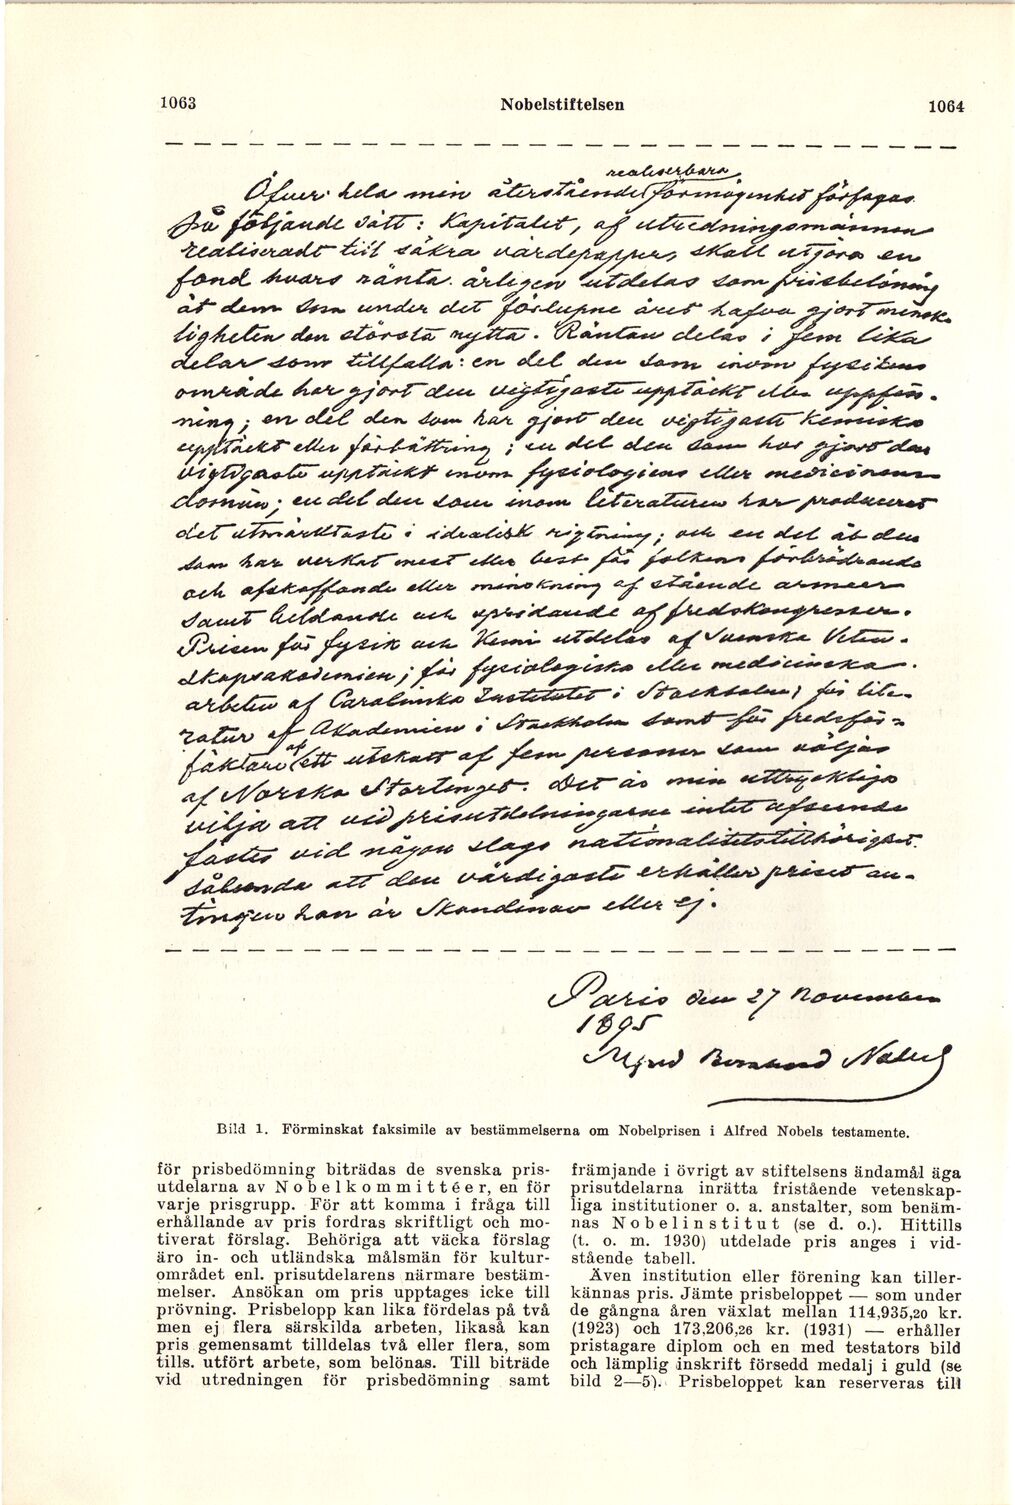 1063
Nobelstiftelsen
1064
realiserbara
Öfver hela min återstående förmögenhet förfogas
på följande sätt: Kapitalet, af utredningsmännen
realiseradt till säkra värdepapper, skall utgöra en
fond hvars ränta årligen utdelas som prisbelöning
åt dem som under det förlupne året hafva gjort mensk-
ligheten den största nytta. Räntan delas i fem lika
delar som tillfalla: en del den som inom fysikens
område har gjort den vigtigaste upptäckt eller uppfin-
ning; en del den som har gjort den vigtigaste kemiska
upptäckt eller förbättring; en del den som har gjort den
vigtigaste upptäckt inom fysiologiens eller medicinens
domän; en del den som inom literaturen har producerat
det utmärktaste i idealisk rigtning; och en del åt den
som har verkat mest eller best för folkens förbrödrande
och afskaffande eller minskning af stående armeer
samt bildande och spridande af fredskongresser.
Prisen för fysik och kemi utdelas af Svenska Veten-
skapsakademien; för fysiologiska eller medicinska
arbeten af Carolinska Institutet i Stockholm; för lite-
ratur af Akademien i Stockholm samt för fredsför-
fäktare af ett utskott af fem personer som väljas
af Norska Stortinget. Det är min uttryckliga
vilja att vid prisutdelningarne intet afseende
fästes vid någon slags nationalitetstillhörighet
sålunda att den värdigaste erhåller priset an-
tingen han är Skandinav eller ej.
Paris den 27 November
1895
Alfred Bernhard Nobel
Bild 1. Förminskat faksimile av bestämmelserna om Nobelprisen i Alfred Nobels testamente.
för prisbedömning biträdas de svenska pris-
utdelarna av Nobelkommittéer, en för
varje prisgrupp. För att komma i fråga till
erhållande av pris fordras skriftligt och mo-
tiverat förslag. Behöriga att väcka förslag
äro in- och utländska målsmän för kultur-
området enl. prisutdelarens närmare bestäm-
melser. Ansökan om pris upptages icke till
prövning. Prisbelopp kan lika fördelas på två
men ej flera särskilda arbeten, likaså kan
pris gemensamt tilldelas två eller flera, som
tills. utfört arbete, som belönas. Till biträde
vid utredningen för prisbedömning samt
främjande i övrigt av stiftelsens ändamål äga
prisutdelarna inrätta fristående vetenskap-
liga institutioner o. a. anstalter, som benäm-
nas Nobelinstitut (se d. o.). Hittills
(t. o. m. 1930) utdelade pris anges i vid-
stående tabell.
Även institution eller förening kan tiller-
kännas pris. Jämte prisbeloppet — som under
de gångna åren växlat mellan 114,935,20 kr.
(1923) och 173,206,26 kr. (1931) — erhåller
pristagare diplom och en med testators bild
och lämplig inskrift försedd medalj i guld (se
bild 2—5). Prisbeloppet kan reserveras till